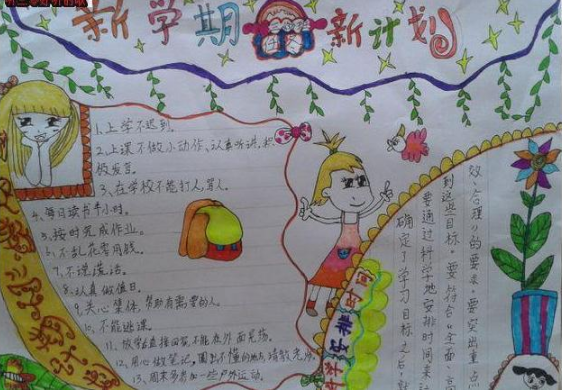 新学期 新计划
1、上学不迟到。
2、上课不做小动作、认真听讲,积
极发言。
3、在学校不能打人,骂人。
4、每日读书半小时。
5、按时完成作业。
6、不乱花零用钱。
7、不说谎话。
8、认真做值日。
9、关心集体,帮助有需要的人。
10、不能逃课。
11、放学后直接回家,不能在外面克荡。
12、用心做笔记,圈出不懂的地方请教老师
13、周末多参加一些户外运动。
科学安排时间
确定了学习目标之后,就
要通过科学地安排时间来
到这些目标。要符合“全面、高
效、合理”的要求。要突出重点